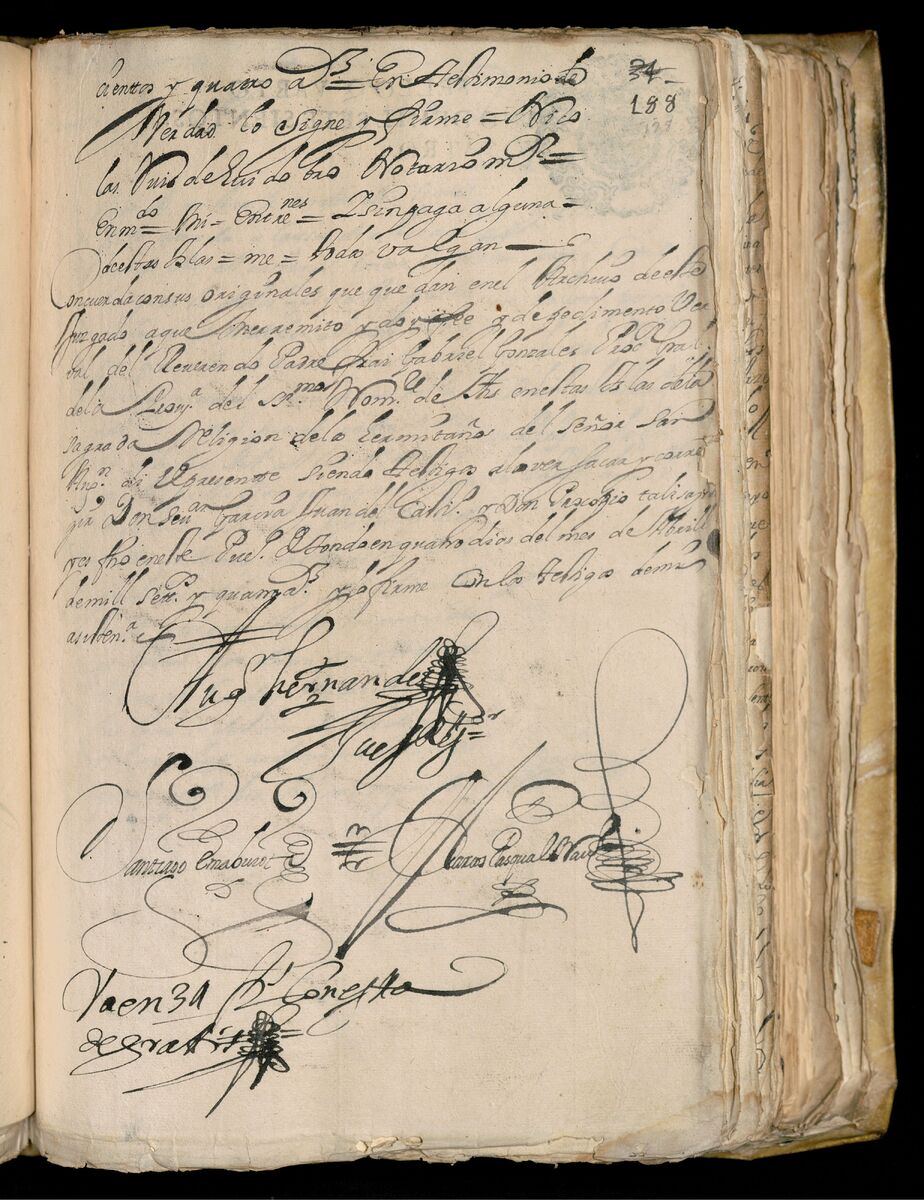 34
188
cientos y quatro a.s = En testimonio de
Verdad lo signe y firme = Nico
las Ruis de
do pco Notario m R =
Enm.do = Mi = Entre nes = Y sin paga alguna =
de estas Islas = me = todo valgan
Concuerda con sus originales que quedan en el Archivo de este
Juzgado a que me remito y doy fee y de pedimento Ver
bal del Reverendo Padre frai Gabriel Gonzales Proc.r gral
de la Prov.a del SS.mo Nom.e de Jhs en estas Islas de la
sagrada Religion de los Hermitaños del señor san
Aug.n di el presente siendo testigos a lo ver sacar y corre
gir Don Seu.ar Garcia Juan del Casti.o y Don
res fho en este Pue.o de tondo en quatro dias del mes de Abrill
de mill sett.s y quarenta a.s y lo firme con los testigos de mi
asisten.a
Aug.n hernandez
Santiago
Marcos Pasqual
Va en 34 f.s Con esta
de gratis